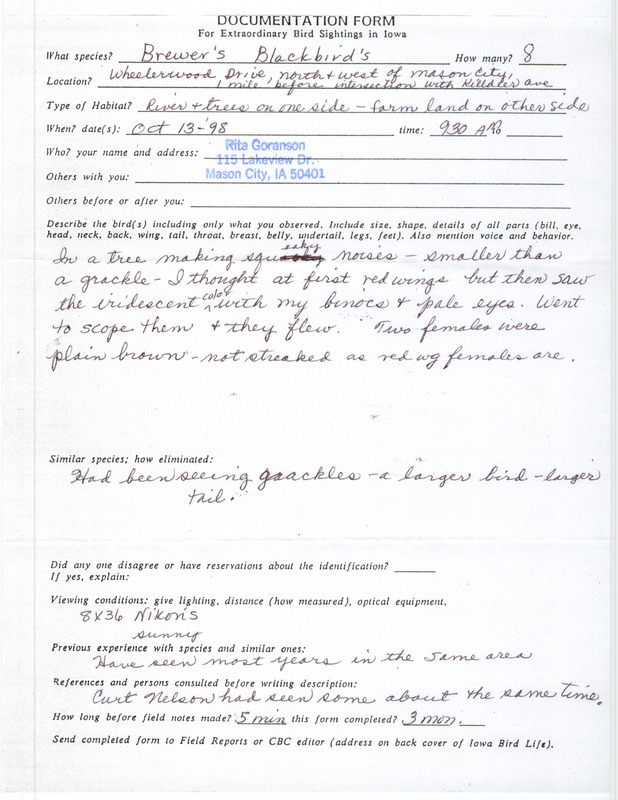 DOCUMENTATION FORM
For Extraordinary Bird Sightings in Iowa
What species? Brewer's Blackbird's How many? 8
Wheelerwood Drive, north & west of Mason City,
Location? 1 mile before intersection with Killdeer ave
Type of Habitat? River & trees on one side - farm land on other side
When? date(s): Oct 13-'98 time: 930 AM
Rita Goranson
Who? your name and address:
115 Lakeview Dr.
Others with you: Mason City, IA 50401
Others before or after you:
Describe the bird(s) including only what you observed. Include size, shape, details of all parts (bill, eye,
head, neck, back, wing, tail, throat, breast, belly, undertail, legs, feet). Also mention voice and behavior.
In a tree making squeaky noises - smaller than
a grackle - I thought at first redwings but then saw
the iridescent color with my binocs & pale eyes. Went
to scope them & they flew. Two females were
plain brown - not streaked as red wg females are.
Similar species; how eliminated:
Had been seeing graackles - a larger bird - larger
tail.
Did any one disagree or have reservations about the identification?
If yes, explain:
Viewing conditions: give lighting, distance (how measured), optical equipment.
8X36 Nikon's
sunny
Previous experience with species and similar ones:
Have seen most years in the same area
References and persons consulted before writing description:
Curt Nelson had seen some about the same time.
How long before field notes made? 5 min this form completed? 3 mon.
Send completed form to Field Reports or CBC editor (address on back cover of Iowa Bird Life).